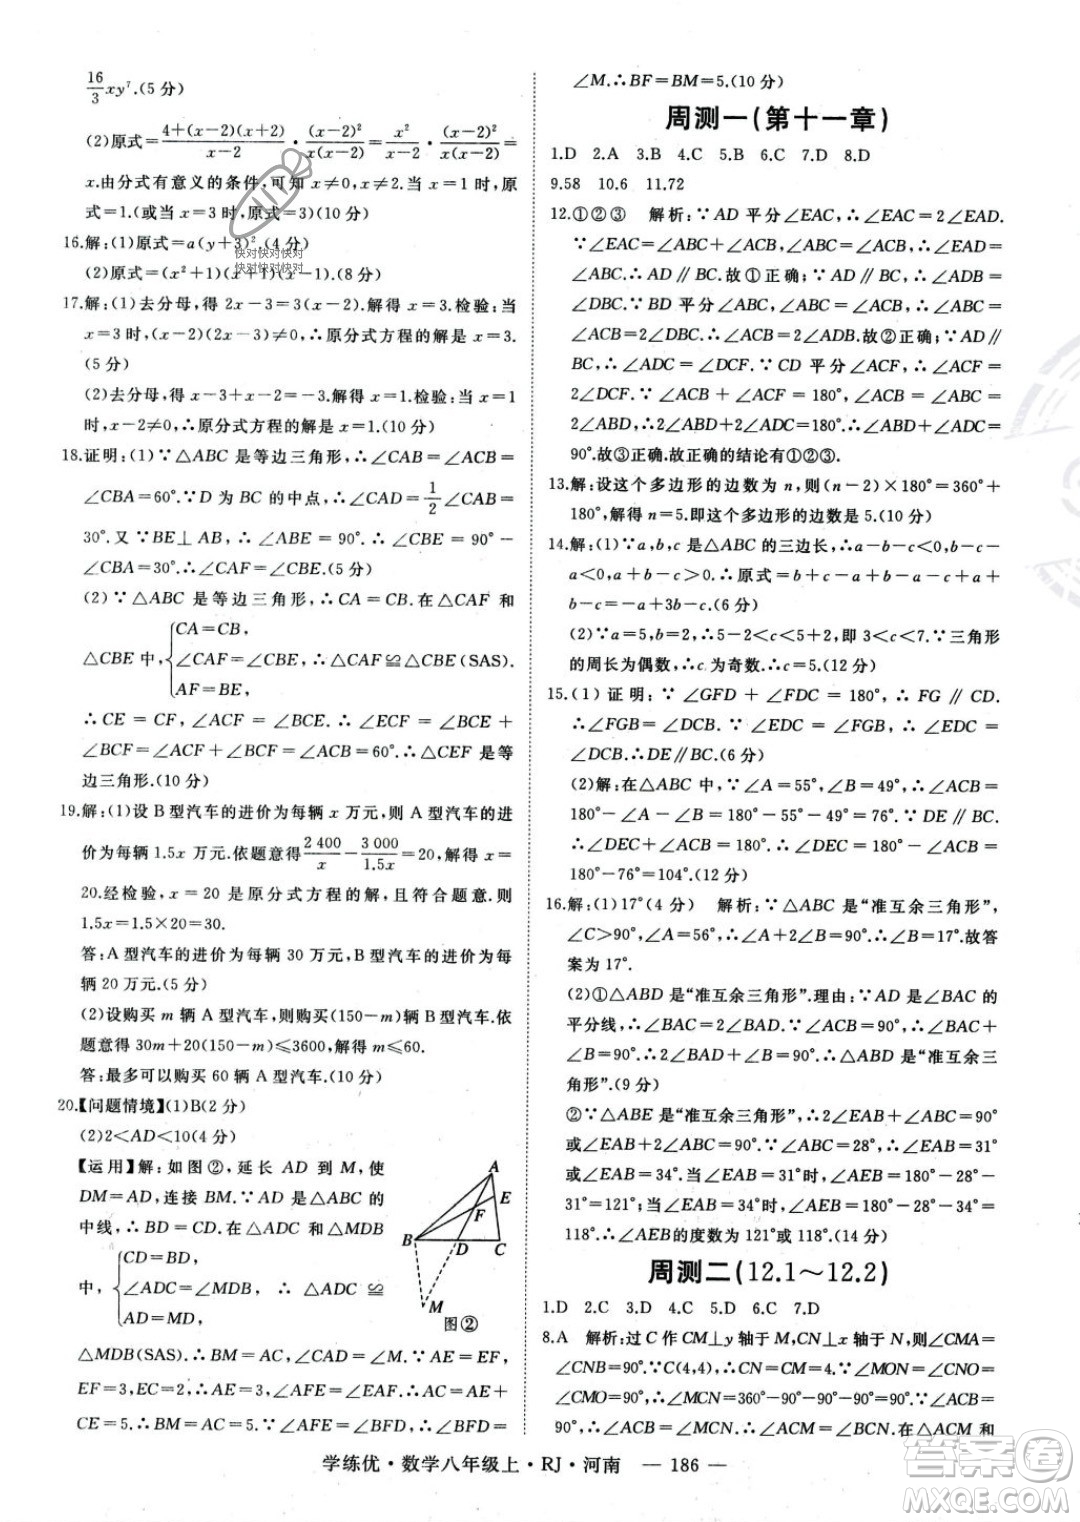 16/3 xy⁷.(5分)
(2)原式=4+(x-2)(x+2)/x-2·(x-2)²/x(x-2)=x²/x-2·(x-2)²/x(x-2)=
x.由分式有意义的条件,可知x≠0,x≠2.当x=1时,原
式=1.(或当x=3时,原式=3)(10分)
16.解:(1)原式=a(y+3)².(4分)
(2)原式=(x²+1)(x+1)(x-1).(8分)
17.解:(1)去分母,得2x-3=3(x-2).解得x=3.检验:当
x=3时,(x-2)(2x-3)≠0,∴原分式方程的解是x=3.
(5分)
(2)去分母,得x-3+x-2=-3.解得x=1.检验:当x=1
时,x-2≠0,∴原分式方程的解是x=1.(10分)
18.证明:(1)∵△ABC是等边三角形,∴∠CAB=∠ACB
=∠CBA=60°.∵D为BC的中点,∴∠CAD=1/2∠CAB=
30°.又∵BE⊥AB,∴∠ABE=90°.∴∠CBE=90°-
∠CBA=30°.∴∠CAF=∠CBE.(5分)
(2)∵△ABC是等边三角形,∴CA=CB.在△CAF和
△CBE中,{CA=CB,
∠CAF=∠CBE,∴△CAF≌△CBE(SAS).
AF=BE,
∴CE=CF,∠ACF=∠BCE.∴∠ECF=∠BCE+
∠BCF=∠ACF+∠BCF=∠ACB=60°.∴△CEF是等
边三角形.(10分)
19.解:(1)设B型汽车的进价为每辆x万元,则A型汽车的进
价为每辆1.5x万元.依题意得2 400/x-3 000/1.5x=20,解得x=
20.经检验,x=20是原分式方程的解,且符合题意.则
1.5x=1.5×20=30.
答:A型汽车的进价为每辆30万元,B型汽车的进价为每
辆20万元.(5分)
(2)设购买m辆A型汽车,则购买(150-m)辆B型汽车.依
题意得30m+20(150-m)≤3600,解得m≤60.
答:最多可以购买60辆A型汽车.(10分)
20.【问题情境】(1)B(2分)
(2)2<AD<10(4分)
【运用】解:如图②,延长AD到M,使
DM=AD,连接BM.∵AD是△ABC的
中线,∴BD=CD.在△ADC和△MDB
中,{CD=BD,
∠ADC=∠MDB,∴△ADC≌
AD=MD,
A
E
F
B
D
C
M
图②
△MDB(SAS).∴BM=AC,∠CAD=∠M.∵AE=EF,
EF=3,∴∠EAF=∠AFE,AE=3.∴AC=AE+
CE=5.∴BM=AC=5.∵∠AFE=∠BFD,∴∠BFD=
∠M.∴BF=BM=5.(10分)
周测一(第十一章)
1.D 2.A 3.B 4.C 5.B 6.C 7.D 8.D
9.58 10.6 11.72
12.①②③ 解析:∵AD平分∠EAC,∴∠EAC=2∠EAD.
∵∠EAC=∠ABC+∠ACB,∠ABC=∠ACB,∴∠EAD=
∠ABC.∴AD∥BC.故①正确;∵AD∥BC,∴∠ADB=
∠DBC.∵BD平分∠ABC,∠ABC=∠ACB,∴∠ABC=
∠ACB=2∠DBC.∴∠ACB=2∠ADB.故②正确;∵AD∥
BC,∴∠ADC=∠DCF.∵CD平分∠ACF,∴∠ACF=
2∠DCF.∵∠ACB+∠ACF=180°,∠ACB=2∠ADB,∴
2∠ADB+2∠DCF=180°.∴∠ADB+∠ADC=∠BDC=
90°.故③正确.故正确的结论有①②③.
13.解:设这个多边形的边数为n,则(n-2)×180°=360°+
180°,解得n=5.即这个多边形的边数是5.(10分)
14.解:(1)∵a,b,c是△ABC的三边长,∴a-b-c<0,b-c-
a<0,c-a-b<0.∴原式=b+c-a+a+c-b+c-a-
b-c=-a-b+2c.(6分)
(2)∵a=5,b=2,∴5-2<c<5+2,即3<c<7.∵三角形
的周长为偶数,∴c为奇数.∴c=5.(12分)
15.(1)证明:∵∠GFD+∠FDC=180°,∴FG∥CD.
∴∠FGB=∠DCB.∵∠EDC=∠FGB,∴∠EDC=
∠DCB.∴DE∥BC.(6分)
(2)解:在△ABC中,∵∠A=55°,∠ACB=49°,∴∠B=
180°-∠A-∠ACB=180°-55°-49°=76°.∵DE∥BC,
∴∠BDE+∠B=180°.∴∠BDE=180°-∠B=
180°-76°=104°.(12分)
16.解:(1)17°(4分) 解析:∵△ABC是“准互余三角形”,
∠C>90°,∠A=56°,∴∠A+2∠B=90°.∴∠B=17°.故答
案为17°.
(2)①△ABD是“准互余三角形”.理由:∵AD是∠BAC的
平分线,∴∠BAC=2∠BAD.∵∠ACB=90°,∴∠BAC+
∠B=90°.∴2∠BAD+∠B=90°.∴△ABD是“准互余三
角形”.(9分)
②∵△ABE是“准互余三角形”,∴2∠EAB+∠ABC=90°
或∠EAB+2∠ABC=90°.∵∠ABC=28°,∴∠EAB=31°
或∠EAB=34°.当∠EAB=31°时,∠AEB=180°-28°-
31°=121°;当∠EAB=34°时,∠AEB=180°-28°-34°=
118°.∴∠AEB的度数为121°或118°.(14分)
周测二(12.1～12.2)
1.D 2.C 3.D 4.C 5.D 6.C 7.D
8.A 解析:过C作CM⊥y轴于M,CN⊥x轴于N,则∠CMA=
∠CNB=90°.∵C(4,4),∴CN=CM=4.∵∠MON=∠CNO=
∠CMO=90°,∴∠MCN=360°-90°-90°-90°=90°=
∠ACB.∴∠ACM=∠BCN.在△ACM和
学练优·数学八年级上·RJ·河南 — 186 —
快对快对快对
快对快对快对
答案圈
MXQE.COM